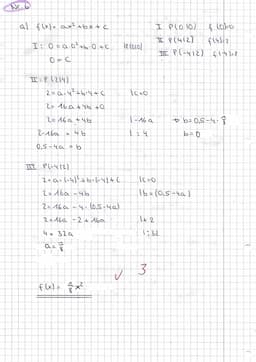 Nr. 6
a) f(x) = ax² + bx + c
I P(0|0) f(0)=0
II P(4|2) f(4)=2
III P(-4|2) f(-4)=2
I: 0 = a·0² + b·0 + c
0 = c
II: P(2|4)
2 = a·4² + b·4 + c | c=0
2 = 16a + 4b + 0
2 = 16a + 4b | -16a
2-16a = 4b | :4
0,5-4a = b
b = 0,5-4·
b=0
III P(-4|2)
2 = a·(-4)² + b·(-4) + c | c=0
2 = 16a - 4b | b=(0,5-4a)
2 = 16a - 4·(0,5-4a)
2 = 16a - 2 + 16a | +2
4 = 32a | :32
a = 1/8
✓ 3
f(x) = 1/8 x²